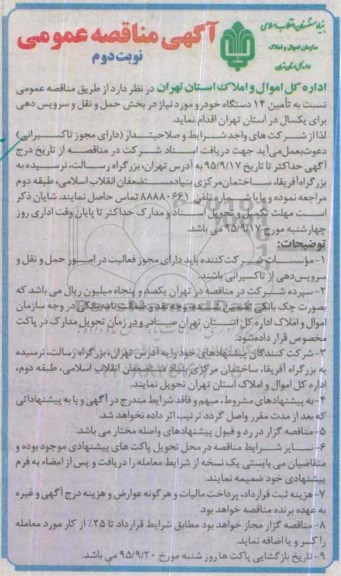 بنیاد مستضعفان انقلاب اسلامی
سازمان اموال و املاک
آگهی مناقصه عمومی
نوبت دوم
اداره کل اموال و املاک استان تهران در نظر دارد از طریق مناقصه عمومی
نسبت به تأمین ۱۴ دستگاه خودرو مورد نیاز در بخش حمل و نقل و سرویس دهی
برای یکسال در استان تهران اقدام نماید.
لذا از شرکت های واجد شرایط و صلاحیتدار (دارای مجوز تاکسیرانی)
دعوت بعمل می آید جهت دریافت اسناد شرکت در مناقصه از تاریخ درج
آگهی حداکثر تا تاریخ ۹۵/۹/۱۷ به آدرس تهران، بزرگراه رسالت، نرسیده به
بزرگراه آفریقا، ساختمان مرکزی بنیاد مستضعفان انقلاب اسلامی، طبقه دوم
مراجعه نموده و یا با شماره تلفن ۸۸۸۸۰۶۶۱ تماس حاصل نمایند. شایان ذکر
است مهلت تکمیل و تحویل اسناد و مدارک حداکثر تا پایان وقت اداری روز
چهارشنبه مورخ ۹۵/۹/۱۷ می باشد.
توضیحات:
۱- مؤسسات شرکت کننده باید دارای مجوز فعالیت در امور حمل و نقل و
سرویس دهی از تاکسیرانی باشند.
۲- سپرده شرکت در مناقصه در تهران یکصد و پنجاه میلیون ریال می باشد که
بصورت چک بانکی تضمین شده، وجه نقد و ضمانت نامه بانکی در وجه سازمان
اموال و املاک اداره کل استان تهران صادر و در زمان تحویل مدارک در پاکت
مخصوص قرار داده شود.
۳- شرکت کنندگان پیشنهادهای خود را به آدرس تهران، بزرگراه رسالت، نرسیده
به بزرگراه آفریقا، ساختمان مرکزی بنیاد مستضعفان انقلاب اسلامی، طبقه دوم،
اداره کل اموال و املاک استان تهران تحویل نمایند.
۴- به پیشنهادهای مشروط، مبهم و فاقد شرایط مندرج در آگهی و یا به پیشنهاداتی
که بعد از مدت مقرر واصل گردد ترتیب اثر داده نخواهد شد.
۵- مناقصه گزار در رد و قبول پیشنهادهای واصله مختار می باشد.
۶- سایر شرایط مناقصه در محل تحویل پاکت های پیشنهادی موجود بوده و
متقاضیان می بایستی یک نسخه از شرایط معامله را دریافت و پس از امضاء به فرم
پیشنهادی خود ضمیمه نمایند.
۷- هزینه ثبت قرارداد، پرداخت مالیات و هرگونه عوارض و هزینه درج آگهی و غیره
به عهده برنده مناقصه خواهد بود.
۸- مناقصه گزار مجاز خواهد بود مطابق شرایط قرارداد تا ۲۵٪ از کار مورد معامله
را کسر و یا اضافه نماید.
۹- تاریخ بازگشایی پاکت ها روز شنبه مورخ ۹۵/۹/۲۰ می باشد.